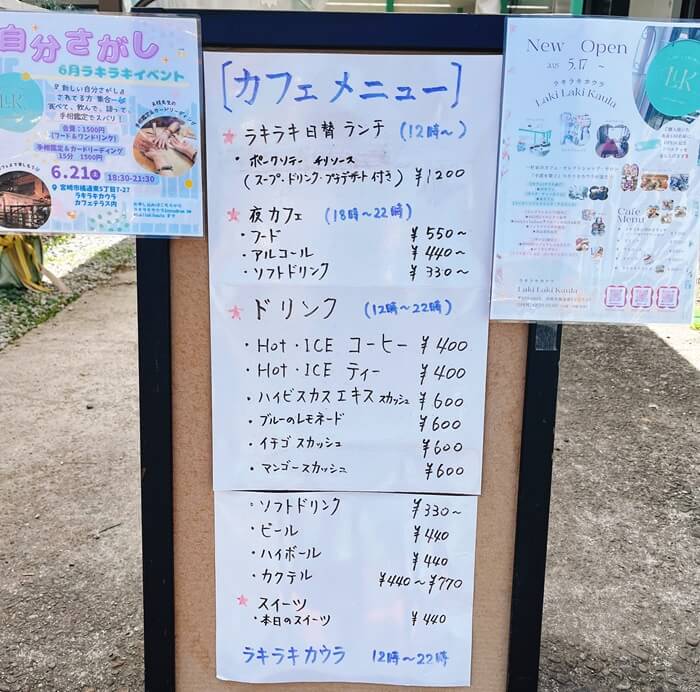 自分さがし
6月ラキラキイベント
新しい自分さがし
されてる方 集合〜
食べて、飲んで、語って、
手相鑑定でスパリ!
会費:1500円
(フード&ワンドリンク)
手相鑑定&カードリーディング
15分 1500円
6.21土 18:30-21:30
宮崎市橘通東5丁目7-27
ラキラキカウラ
カフェテラス内
[カフェメニュー]
ラキラキ日替ランチ (12時〜)
・ポークソテー チリソース
(スープ・ドリンク・プチデザート付き) ¥1200
夜カフェ (18時〜22時)
・フード ¥550〜
・アルコール ¥440〜
・ソフトドリンク ¥330〜
ドリンク (12時〜22時)
・Hot・ICE コーヒー ¥400
・Hot・ICE ティー ¥400
・ハイビスカスエキススカッシュ ¥600
・ブルーのレモネード ¥600
・イチゴスカッシュ ¥600
・マンゴースカッシュ ¥600
・ソフトドリンク ¥330〜
・ビール ¥440
・ハイボール ¥440
・カクテル ¥440〜¥770
スイーツ
・本日のスイーツ ¥440
ラキラキカウラ 12時〜22時
New Open
2025 5.17 〜
ラキラキカウラ
Laki Laki Kaula
LLK
Cafe
Menu
ラキラキカウラ
Laki Laki Kaula